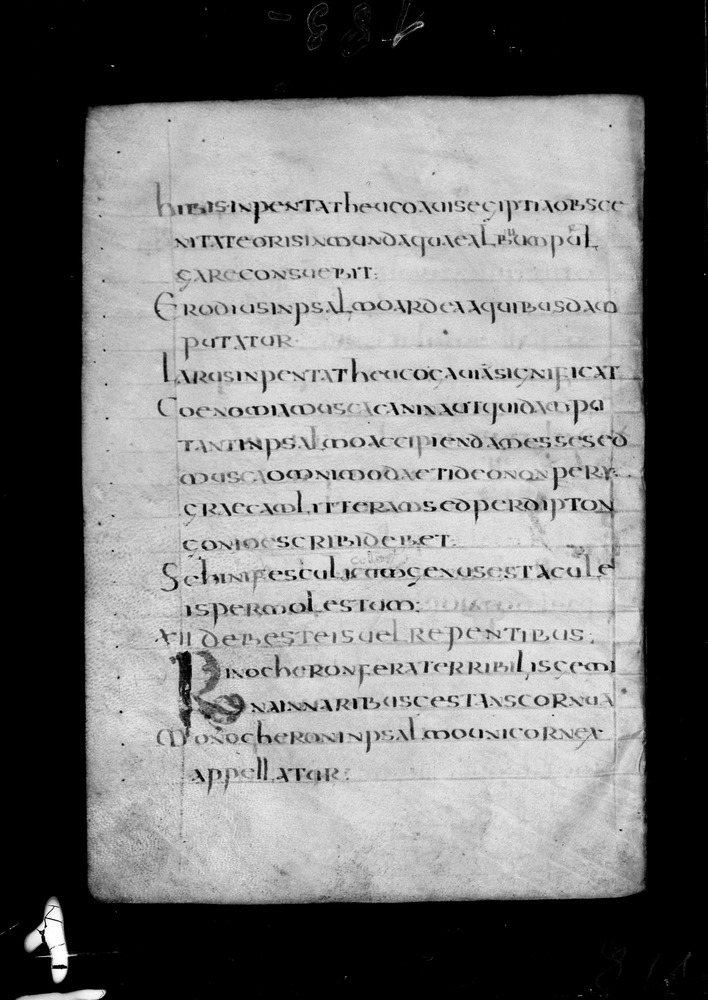 hibisinpentatheucoauisegiptiaobsce
nitateorisinmundaquaealbumpul
gareconsuebit:
Erodiusinpsalmoardeaaquibusdam
putatur·
Larusinpentatheucogauiāsignificat
Coenomiamuscacaninautquidampu
tantinpsalmoaccipiendamessesed
muscaomnimodaetideononpery
graecamlitteramsedperdipton
conioescribidebet:
Schinifesculicumgenusestacule
ispermolestum:
XII debesteisuelrepentibus:
Rinocheronferaterribilisgemi
nainnaribusgestanscornua
Monocheroninpsalmounicornex
appellatur: